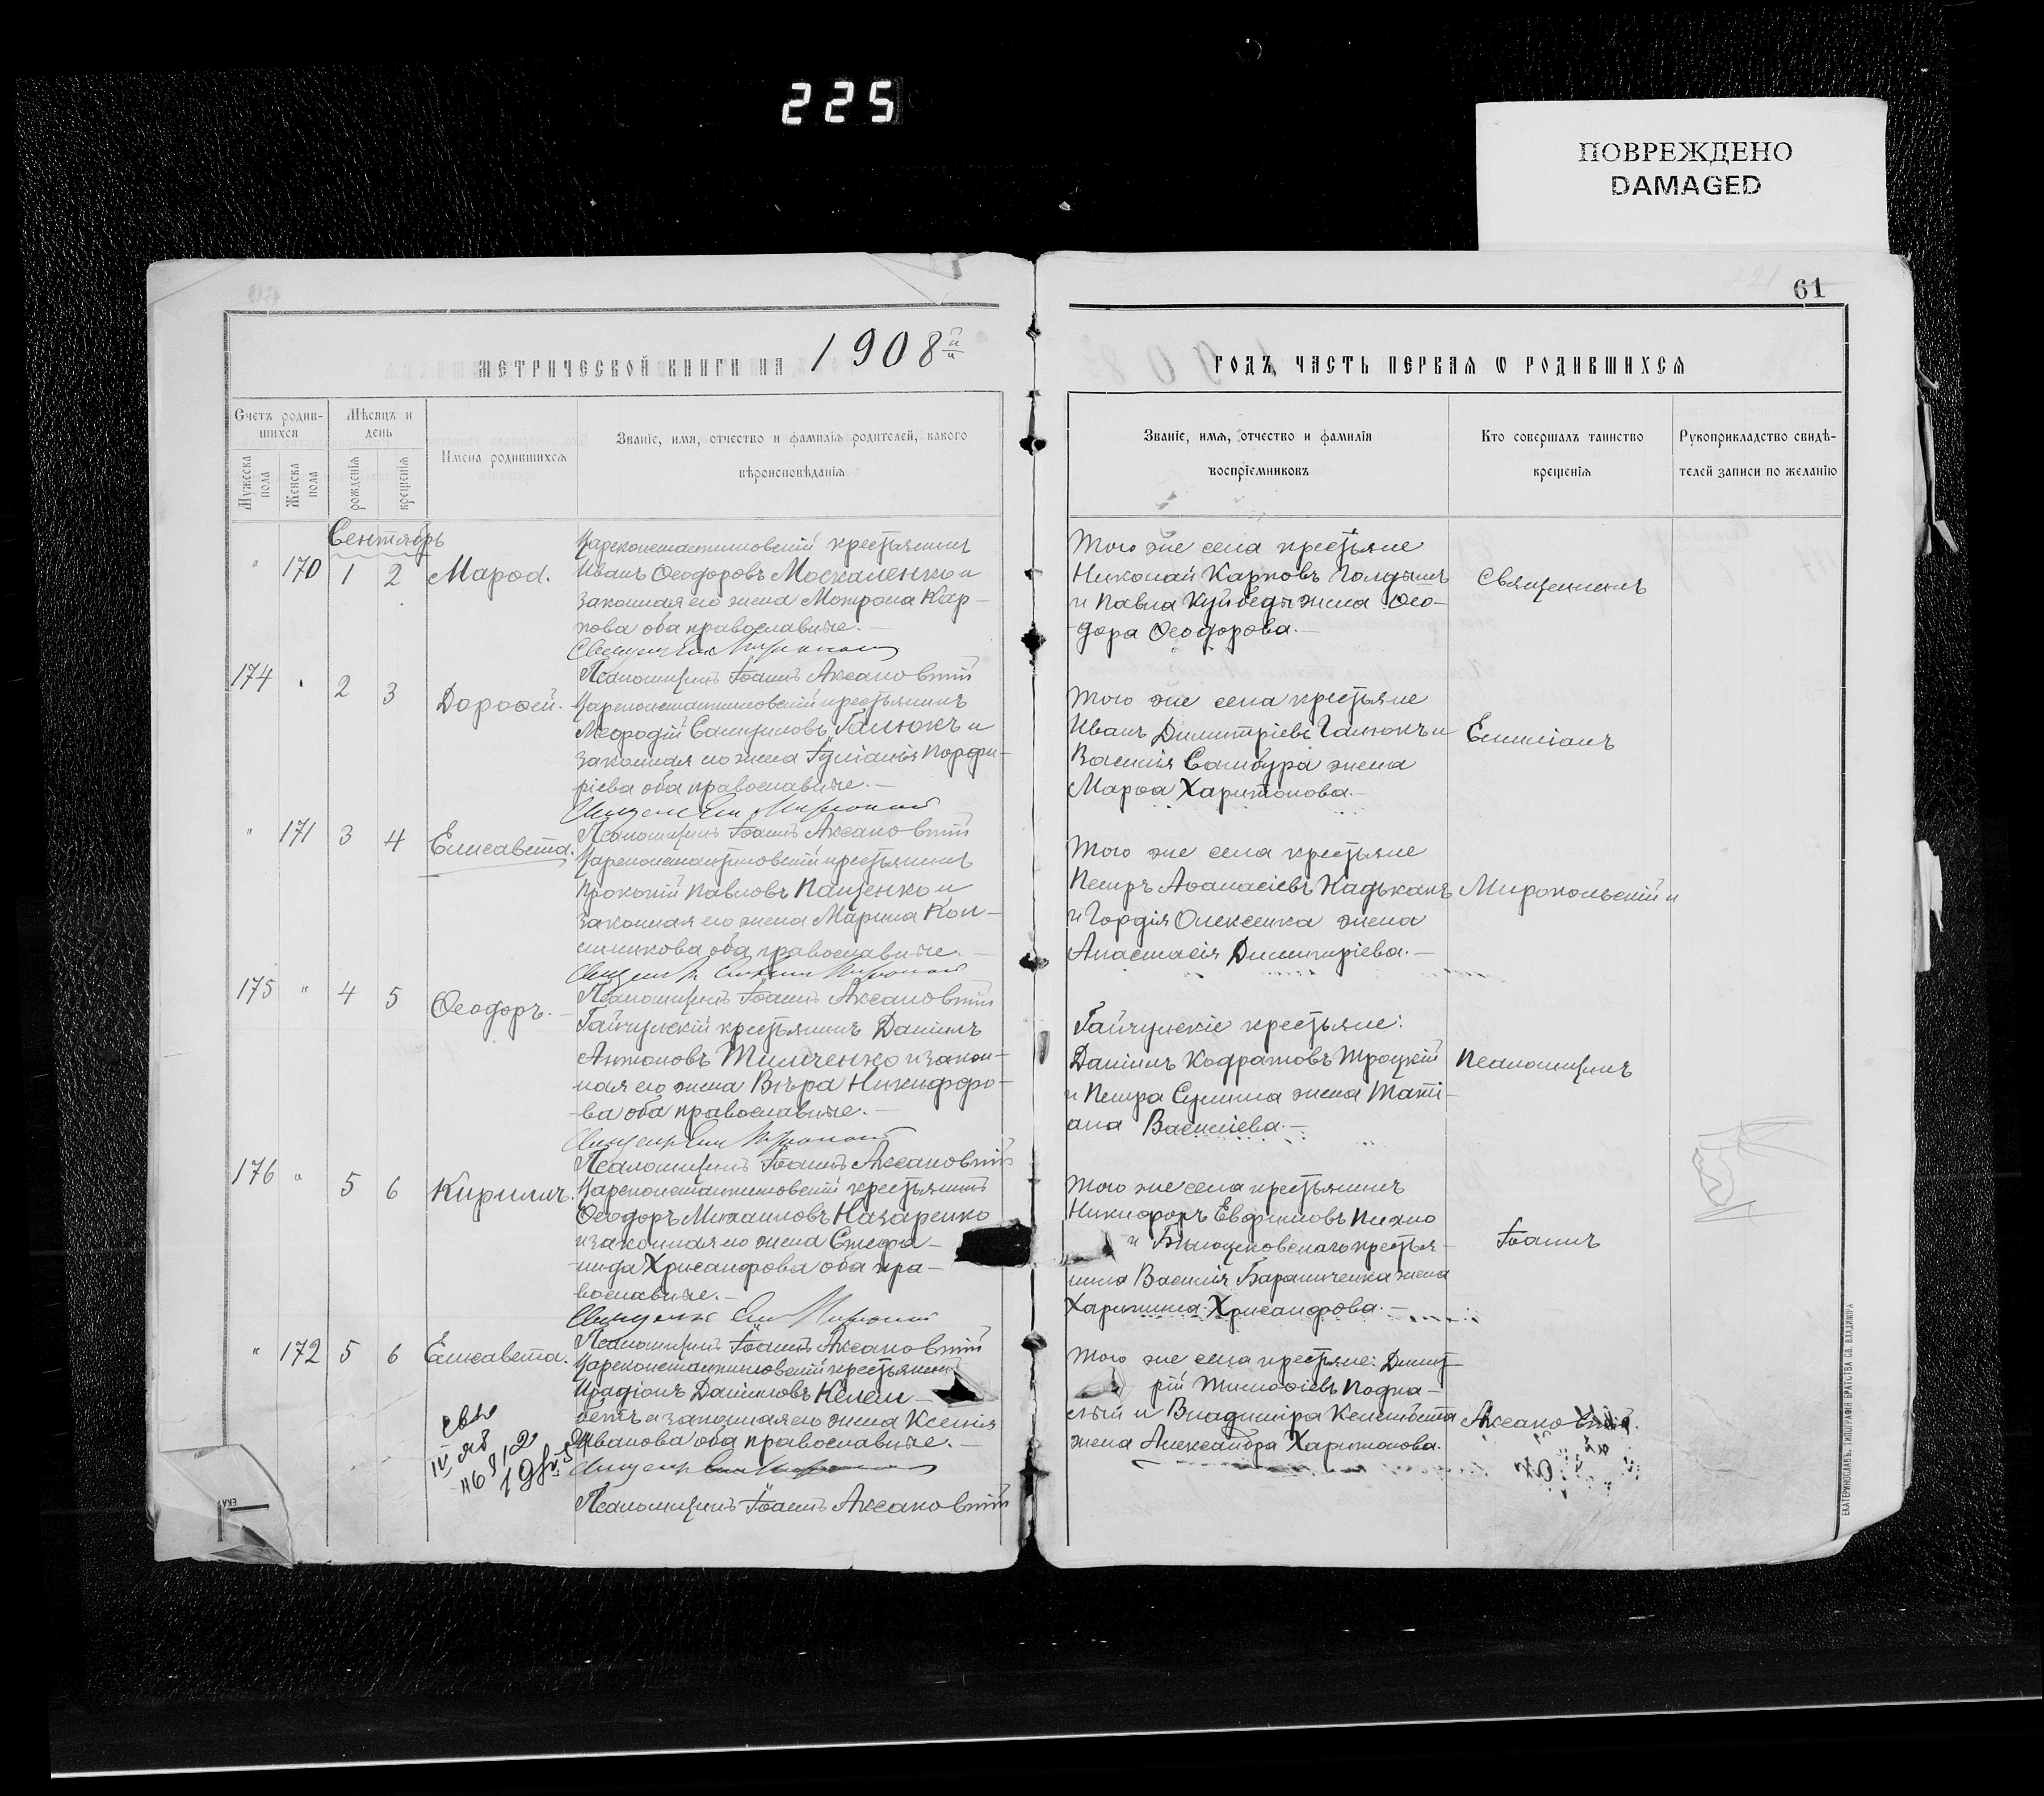 225
ПОВРЕЖДЕНО
DAMAGED
61
МЕТРИЧЕСКОЙ КНИГИ НА 1908й
ГОДЪ, ЧАСТЬ ПЕРВАЯ Ѡ РОДИВШИХСЯ
Счетъ родив-
шихся
Мѣсяцъ и
день
Мужеска
пола
Женска
пола
рожденія
крещенія
Имена родившихся
Званіе, имя, отчество и фамилія родителей, какого
вѣроисповѣданія
Званіе, имя, отчество и фамилія
воспріемниковъ
Кто совершалъ таинство
крещенія
Рукоприкладство свидѣ-
телей записи по желанію
Сентябрь
" 170 1 2 Марѳа.
Цареконстантиновскій крестьянинъ
Иванъ Ѳеодоровъ Москаленко и
законная его жена Мотрона Кар-
пова оба православные.
Псаломщикъ Іоаннъ Аксановскій
Того же села крестьяне
Николай Карповъ
и Павла Куйбеды жена Ѳео-
дора Ѳеодорова.
Священникъ
174 " 2 3 Дороѳей.
Цареконстантиновскій крестьянинъ
Меѳодій Галюкъ и
законная его жена Іуліанія Порфи-
ріева оба православные.
Псаломщикъ Іоаннъ Аксановскій
Того же села крестьяне
Иванъ Димитріевъ Галюкъ и
Василія Самбура жена
Марѳа Харитонова.
Емиліанъ
" 171 3 4 Елисавета.
Цареконстантиновскій крестьянинъ
Прокопій Павловъ Пащенко и
законная его жена Марина Кон-
оба православные.
Псаломщикъ Іоаннъ Аксановскій
Того же села крестьяне
Петръ Аѳанасіевъ
и Гордія Олексенка жена
Анастасія Димитріева.
Миропольскій и
175 " 4 5 Ѳеодоръ.
Гайчулскій крестьянинъ Даніилъ
Антоновъ Тимченко и закон-
ная его жена Вѣра Никифоро-
ва оба православные.
Псаломщикъ Іоаннъ Аксановскій
Гайчулскіе крестьяне:
Даніилъ Кодратовъ Троцкій
и Петра жена Таті-
ана Василіева.
Псаломщикъ
176 " 5 6 Кириллъ.
Цареконстантиновскій крестьянинъ
Ѳеодоръ Михаиловъ Назаренко
и законная его жена Стефа-
нида Хрисанфова оба пра-
вославные.
Псаломщикъ Іоаннъ Аксановскій
Того же села крестьянинъ
Никифоръ Евфимовъ Пихно
и крестья-
нина Василія Бараниченка жена
Харитина Хрисанфова.
Іоаннъ
" 172 5 6 Елисавета.
Цареконстантиновскій крестьянинъ
Иродіонъ Даніиловъ Келем-
бетъ и законная его жена Ксенія
Иванова оба православные.
Псаломщикъ Іоаннъ Аксановскій
Того же села крестьяне: Димит-
рій Тимоѳіевъ Подка-
и Владиміра Келембета
жена Александра Харитонова.
Аксановскій.
ЕКАТЕРИНОСЛАВЪ. ТИПОГРАФІЯ БРАТСТВА СВ. ВЛАДИМІРА